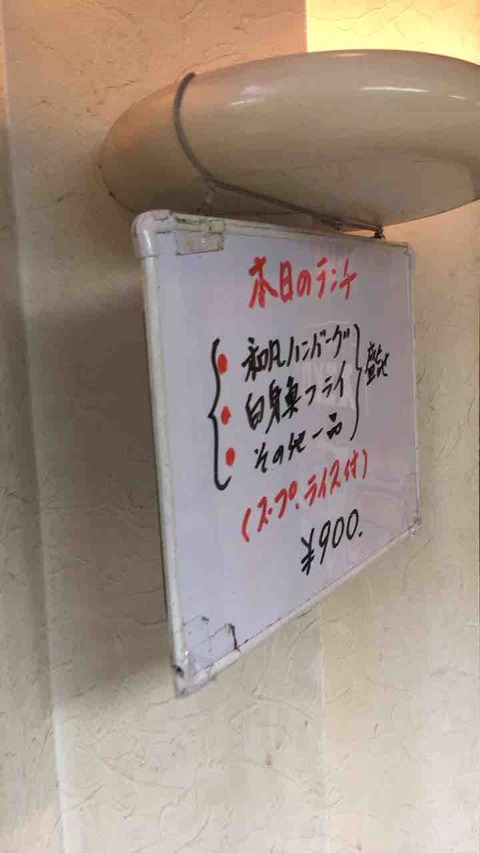 本日のランチ
和風ハンバーグ
白身魚フライ
その他一品
盛合せ
(スープ、ライス付)
¥900.